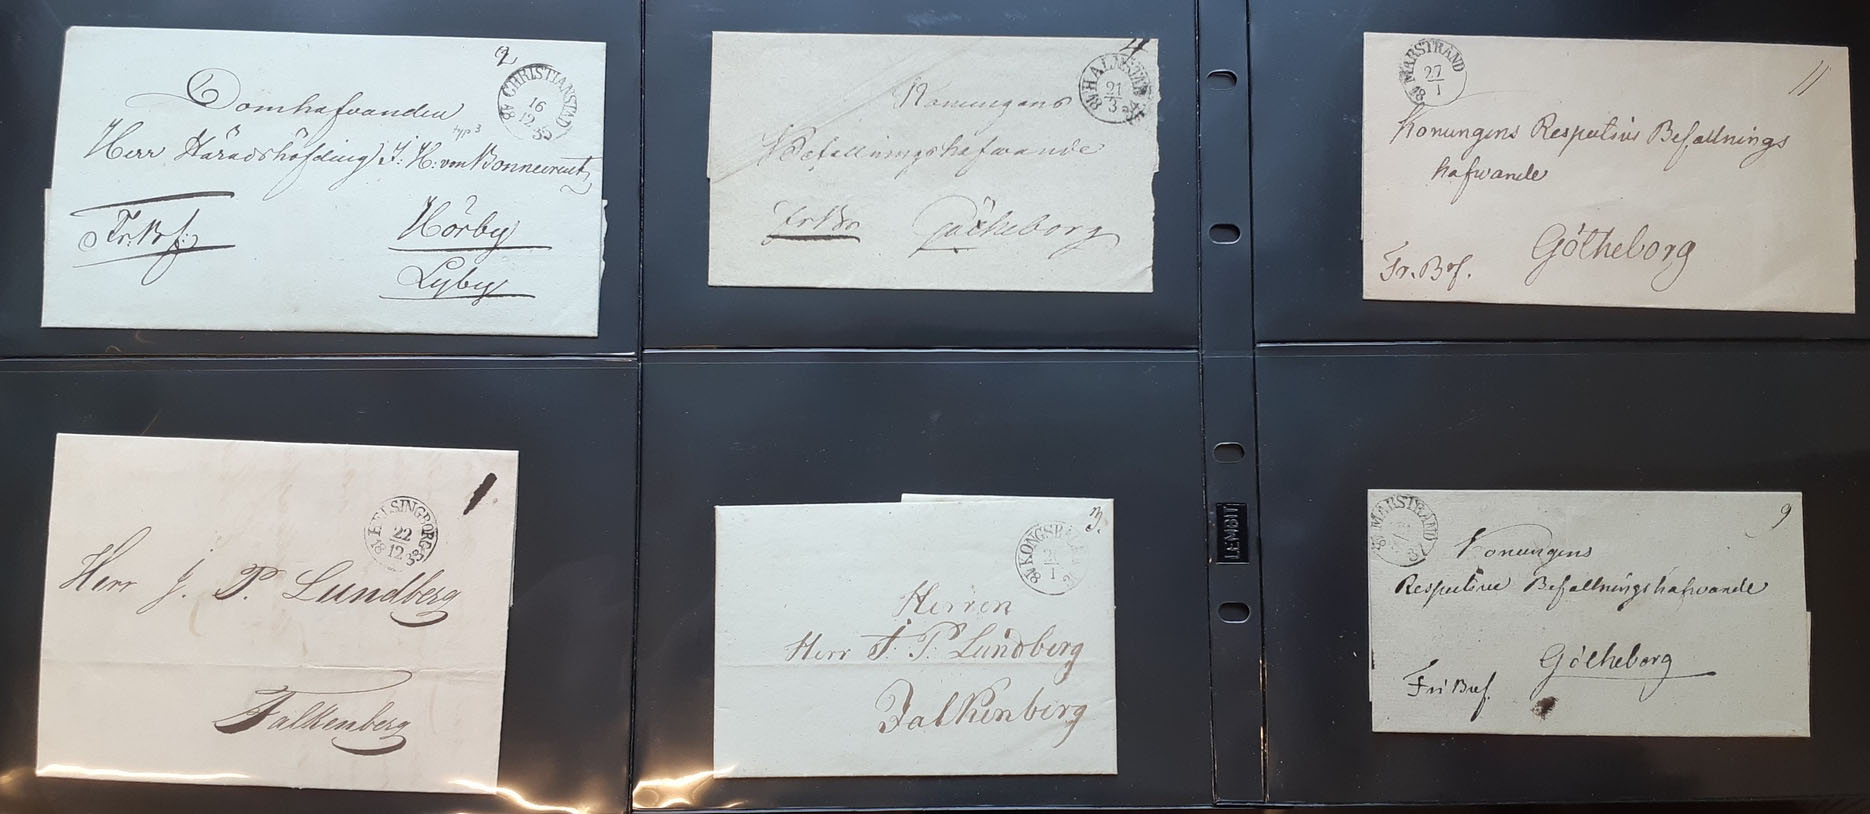 2
CHRISTIANSTAD
16
12
1835
Domhafvanden
typ 3
Herr Häradshöfding J: H: von
Fr: Brf:
Hörby
Lyby
4
21
3
Konungens
Befallningshafwande
Fr Br
Götheborg
MARSTRAND
27
1
18
11
Konungens Respective Befallnings
hafwande
Götheborg
Fr. Bref.
HELSINGBORG
22
12
1833
1
Herr J. P. Lundberg
Falkenberg
3.
1
18
Herren
Herr J. P. Lundberg
Falkenberg
LEMBIT
MARSTRAND
9
Konungens
Respective Befallningshafwande
Götheborg
Fri Bref.